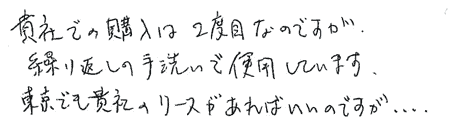 貴社での購入は2度目なのですが、
繰り返しの手洗いで使用しています。
東京でも貴社のリースがあればいいのですが....